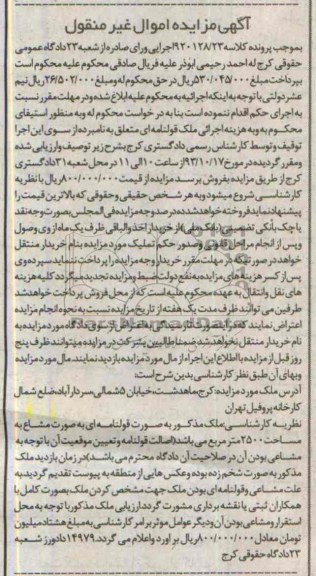 آگهی مزایده اموال غیر منقول
بموجب پرونده کلاسه ۹۳۰۱۲۸/۲۳ اجرایی ورای صادره از شعبه ۲۳ دادگاه عمومی
حقوقی کرج له احمد رحیمی ابوذر علیه فریال صادقی محکوم علیه محکوم است
بپرداخت مبلغ ۵۳۰/۰۴۵/۰۰۰ ریال در حق محکوم له ومبلغ ۲۶/۵۰۲/۰۰۰ ریال نیم
عشر دولتی با توجه به اینکه اجرائیه به محکوم علیه ابلاغ شده ودر مهلت مقرر نسبت
به اجرای حکم اقدام ننموده است بنا به در خواست محکوم له وبه منظور استیفای
محکوم به وبه هزینه اجرائی ملک قولنامه ای متعلق به نامبرده از سوی این اجرا
توقیف وتوسط کارشناس رسمی دادگستری کرج بشرح زیر توصیف وارزیابی شده
ومقرر گردیده در مورخ ۹۳/۱۰/۱۷ از ساعت ۱۰ الی ۱۱ در محل شعبه ۳۱ دادگستری
کرج از طریق مزایده بفروش برسد مزایده از قیمت ۸۰۰/۰۰۰/۰۰۰ ریال با نظریه
کارشناسی شروع میشود وبه هر شخص حقیقی وحقوقی که بالاترین قیمت را
پیشنهاد نماید فروخته خواهد شد ده در صد وجه مزایده فی المجلس بصورت وجه نقد
یا چک بانکی تضمینی (بانک ملی) از خریدار اخذ والباقی ظرف یک ماه از وی وصول
وپس از انجام مراحل قانونی وصدور حکم تملیک مورد مزایده بنام خریدار منتقل
خواهد در صورتیکه در مهلت مقرر خریدار وجه مزایده را پرداخت ننماید سپرده وی
پس از کسر هزینه های مزایده به نفع دولت ضبط ومزایده تجدید میگردد کلیه هزینه
های نقل وانتقال به عهده محکوم علیه است که از محل فروش پرداخت خواهد شد
طرفین می توانند ظرف مدت یک هفته از تاریخ مزایده نسبت به نحوه انجام مزایده
اعتراض نمایند که در اینصورت تا رسیدگی به اعتراض از سوی دادگاه مورد مزایده به
نام خریدار منتقل نخواهد شد ضمنا طالبین شرکت در مزایده میتوانند ظرف پنج
روز قبل از مزایده با اطلاع این اجراء از مال مورد مزایده بازدید نمایند. مال مورد مزایده
وبهای آن طبق نظر کارشناسی بدین شرح است:
آدرس ملک مورد مزایده: کرج-ماهدشت-خیابان ۵ شمالی-سردار آباد-ضلع شمال
کارخانه پروفیل تهران
نظریه کارشناسی:ملک مذکور به صورت قولنامه ای به صورت مشاع به
مساحت ۲۵۰۰ متر مربع می باشد(اصالت قولنامه وتعیین موقعیت آن با توجه به
مشاعی بودن آن در صلاحیت آن دادگاه محترم می باشد)در زمان بازدید ملک
مذکور به صورت شخم زده بوده وعکس هایی از منطقه به پیوست تقدیم گردید.به
علت مشاعی وقولنامه ای بودن ملک جهت مشخص کردن ملک بصورت کامل با
همکاران ثبتی یا نقشه برداری مشورت گردد ارزیابی ملک مذکور با توجه به محل
استقرار ومشاعی بودن آن ودیگر عوامل موثر بر امر کارشناسی به مبلغ هشتاد میلیون
تومان معادل ۸۰۰/۰۰۰/۰۰۰ ریال بر آورد واعلام می گردد. ۱۴۹۷۹ دادورز شعبه
۲۳ دادگاه حقوقی کرج